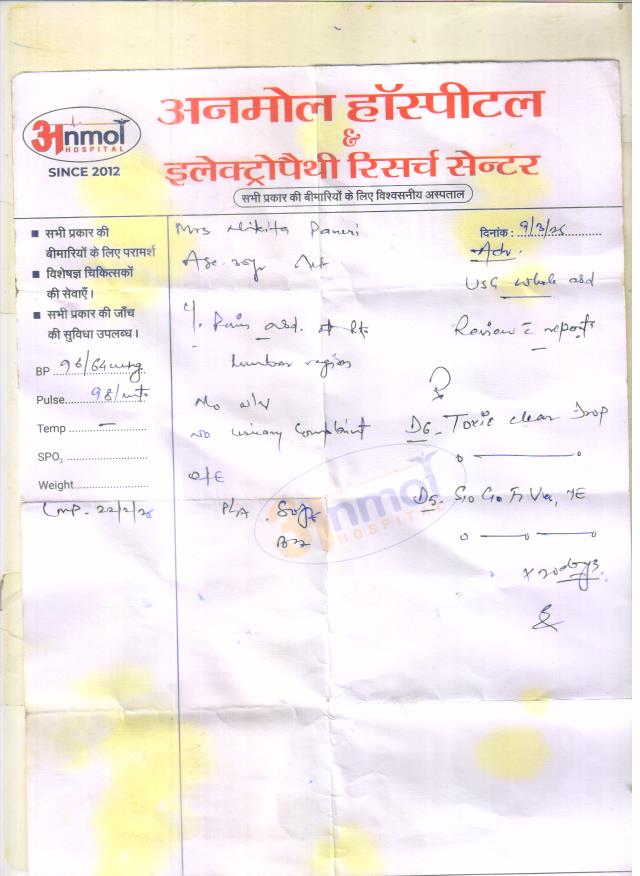 अnmol
HOSPITAL
SINCE 2012
अनमोल हॉस्पीटल
&
इलेक्ट्रोपैथी रिसर्च सेन्टर
सभी प्रकार की बीमारियों के लिए विश्वसनीय अस्पताल
■ सभी प्रकार की
बीमारियों के लिए परामर्श
■ विशेषज्ञ चिकित्सकों
की सेवाएँ।
■ सभी प्रकार की जाँच
की सुविधा उपलब्ध।
BP 96/64 mmhg
Pulse 98/mt
Temp —
SPO2
Weight
LMP - 22/2/26
Mrs Nikita Paneri
Age
c/o Pain abd. at Rt
lumbar region
No n/v
no urinary Complaint
O/E
P/A . Soft
दिनांक : 9/3/26
Adv.
USG whole abd
Review c reports
D6 - Toxic clear Drop
D5 -
x 20 days.
अnmol
HOSPITAL